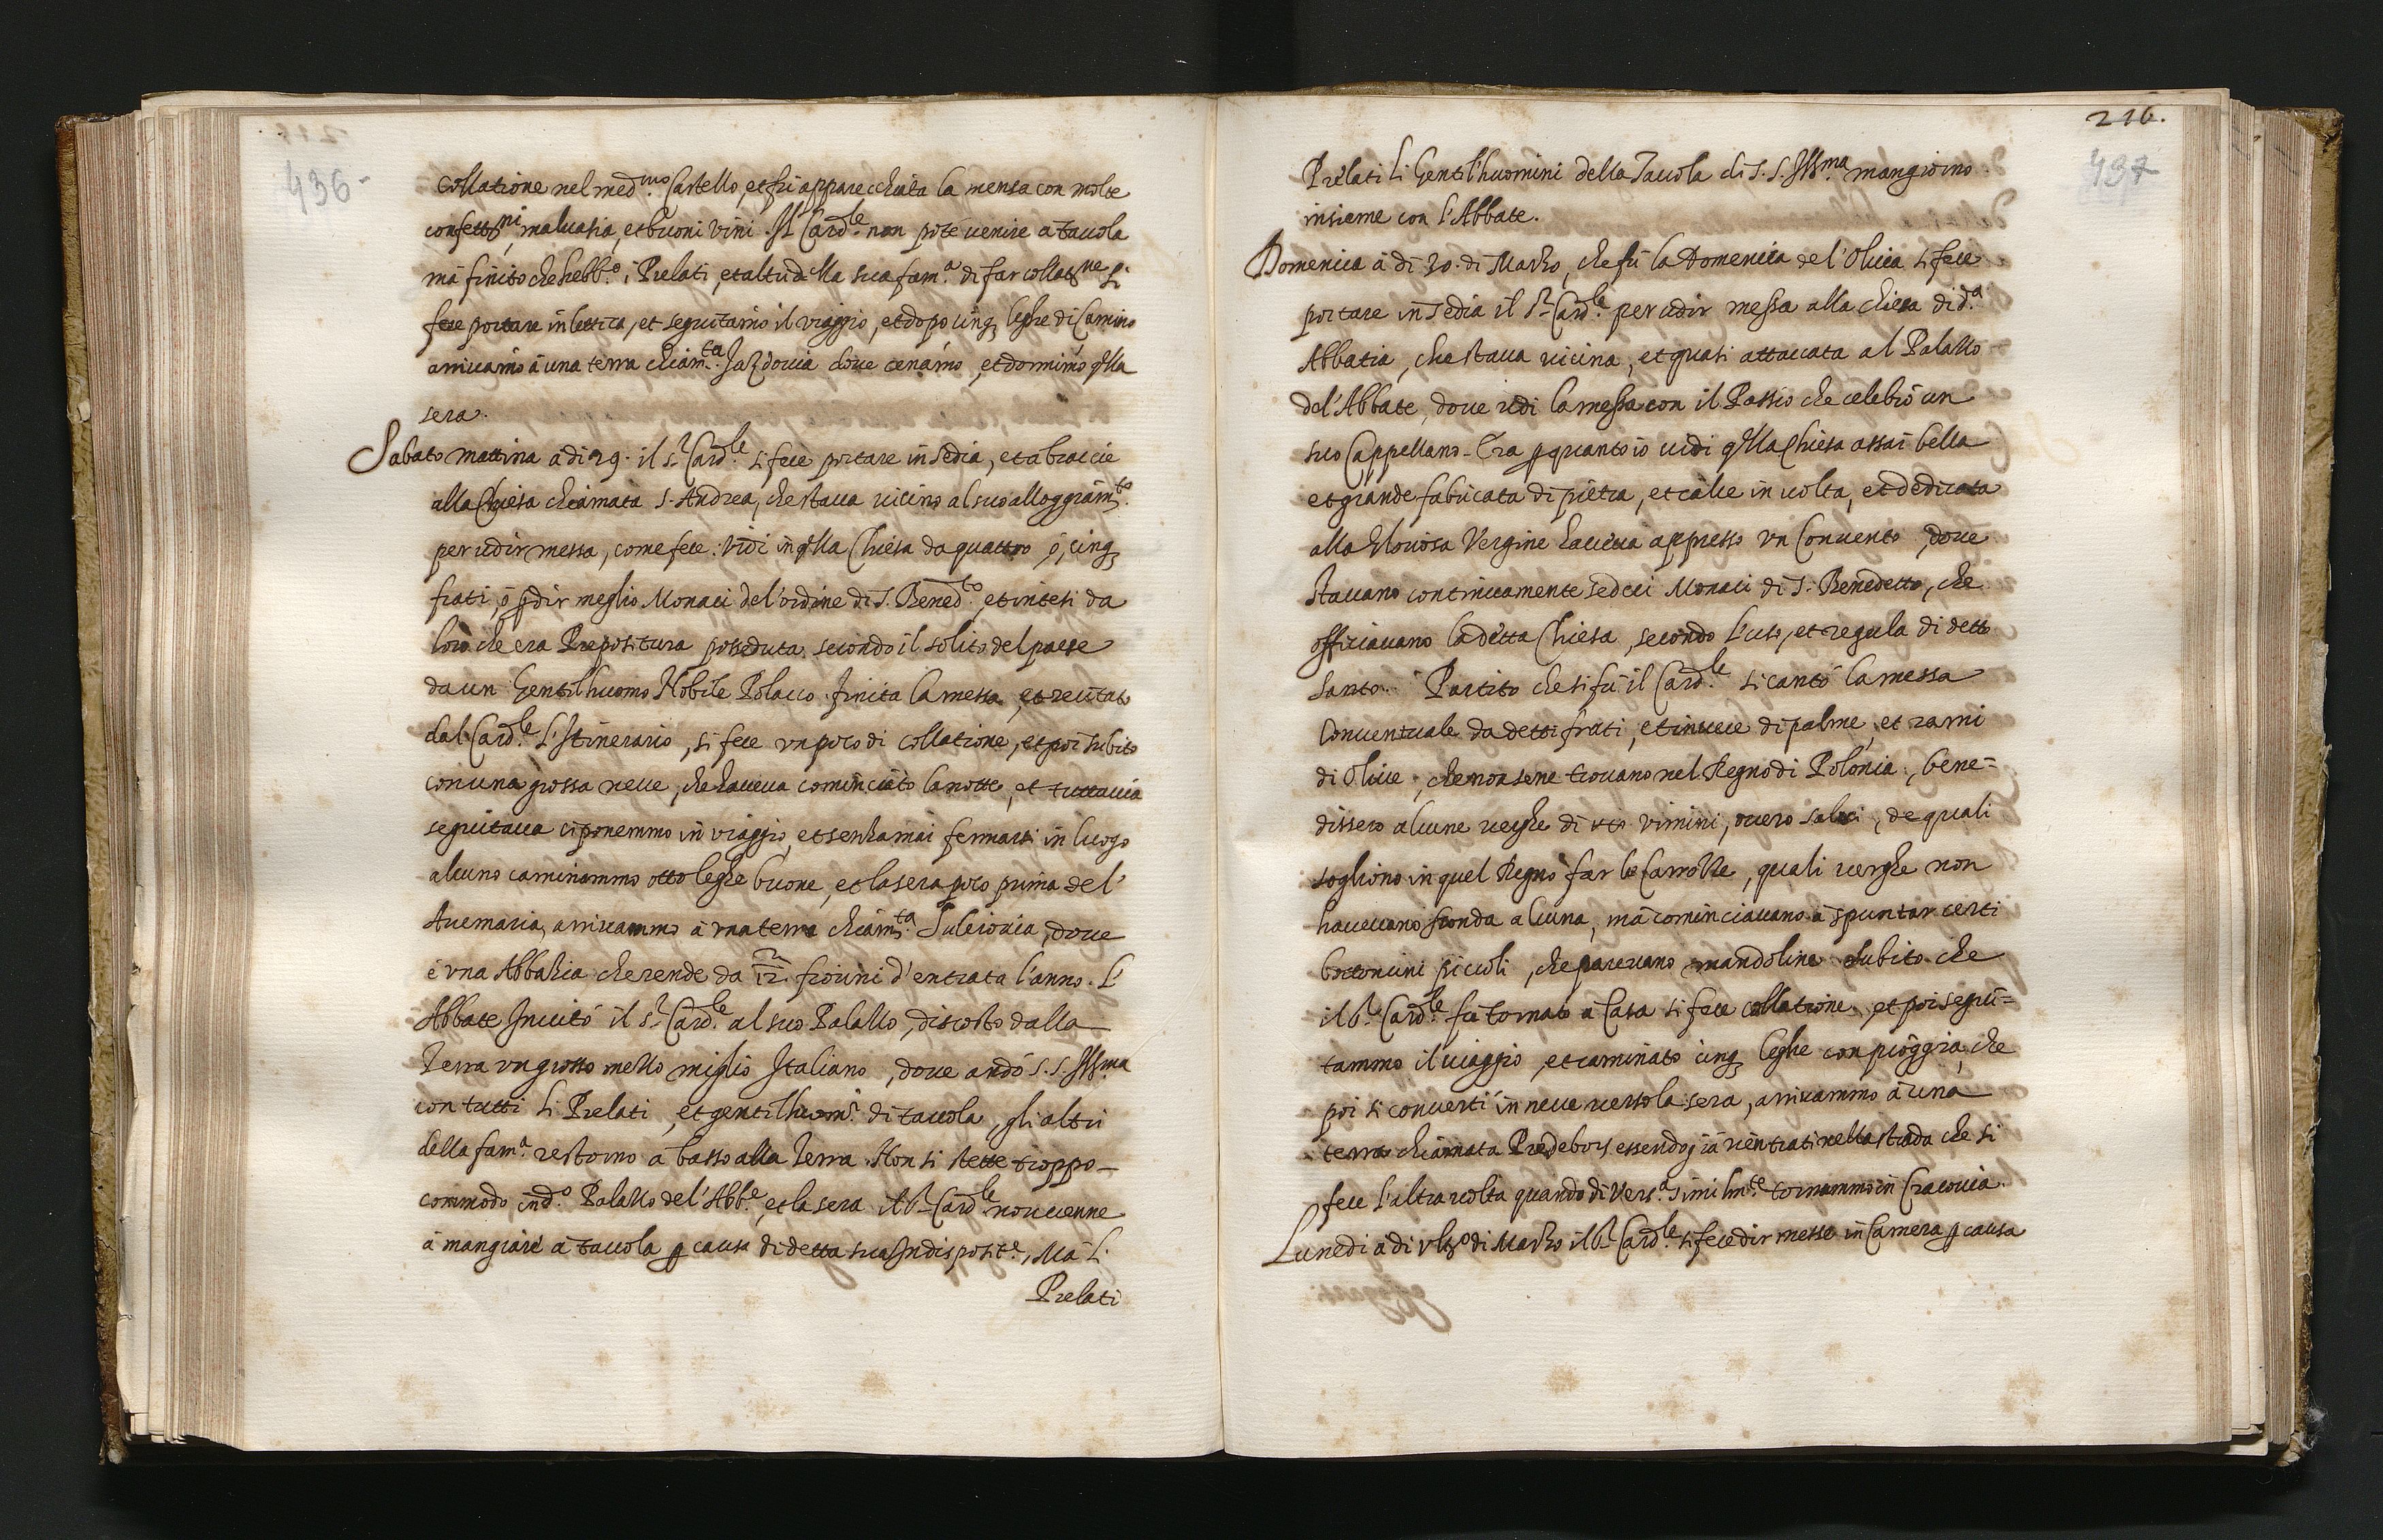 436-
Collatione nel med.mo Castello, et fù apparecchiata la mensa con molte
confett.ni, maluasia, et buoni vini. Il Card.le non potè uenire à tauola
mà finito che hebb.o i Prelati, et altri della sua fam.a di far collat.ne si
fece portare in lettica, et seguitamo il viaggio, et dopo cinq3 leghe di Camino
arriuamo à una terra chiam.ta Jazdouia doue cenamo, et dormimo q.lla
sera.
Sabato mattina à di 29. il s.r Card.le si fece portare in sedia, et à braccie
alla Chiesa chiamata S. Andrea, che staua uicino al suo alloggiam.to
per udir messa, come fece. Vidi in q.lla Chiesa da quattro ò, cinq3
frati, ò p dir meglio Monaci del'ordine di S. Bened.to, et intesi da
loro che era Prepositura posseduta secondo il solito del paese
da un Gentilhuomo Nobile Polacco. finita la messa, et recitato
dal Card.le l'Itinerario, si fece vn poco di collatione, et poi subito
con una grossa neue, che haueua cominciato la notte, et tuttauia
seguitaua ci ponemmo in viaggio, et senza mai fermarsi in luogo
alcuno caminammo otto leghe buone, et la sera poco prima del'
Auemaria, arriuammo à vna terra chiam.ta Suleiouia, doue
è vna Abbazia che rende da 12 fiorini d'entrata l'anno. L'
Abbate Inuitò il s.r Card.le al suo Palazzo, discosto dalla
Terra vn grosso mezzo miglio Italiano, doue andò S. S. Ill.ma
con tutti li Prelati, et gentilhuom.i di tauola, gli altri
della fam.a restorno à basso alla Terra. Non si stette troppo
commodo in d.o Palazzo del'Abb.e, et la sera il s.r Card.le non uenne
à mangiare à tauola p causa di detta sua Indisposit.e, Mà li
Prelati
216.
437
Prelati li Gentilhuomini della Tauola di S. S. Ill.ma mangiorno
insieme con l'Abbate.
Domenica à di 30. di Marzo, che fù la Domenica del'Oliua si fece
portare in sedia il s.r Card.le per udir messa alla chiesa di d.a
Abbatia, che staua uicina, et quasi attaccata al Palazzo
del'Abbate, doue udì la messa con il Passio che celebrò un
suo Cappellano. Era p quanto io uidi q.lla Chiesa assai bella
et grande fabricata di pietra, et calce in uolta, et dedicata
alla Gloriosa Vergine haueua appresso vn Conuento, doue
stauano continuamente sedeci Monaci di S. Benedetto, che
offitiauano la detta Chiesa, secondo l'uso, et regula di detto
Santo. Partito che si fù il Card.le si cantò la messa
Conuentuale da detti frati, et inuece di palme, et rami
di Oliue, che non se ne trouano nel Regno di Polonia, bene=
dissero alcune uerghe di vimini, ouero salici, de quali
sogliono in quel Regno far le Carrozze, quali uerghe non
haueuano fronda alcuna, mà cominciauano à spuntar certi
bottoncini piccoli, che pareuano mandoline. Subito che
il s.r Card.le fù tornato à Casa si fece collatione, et poi segui=
tammo il uiaggio, et caminato cinq3 leghe con pioggia, che
poi si conuertì in neue uerso la sera, arriuammo à una
terra chiamata Predebors essendo già rientrati nella strada che si
fece l'altra uolta quando di Vers.a similm.te tornammo in Cracouia.
Lunedi à di vlt.o di Marzo il s.r Card.le si fece dir messa in Camera p causa